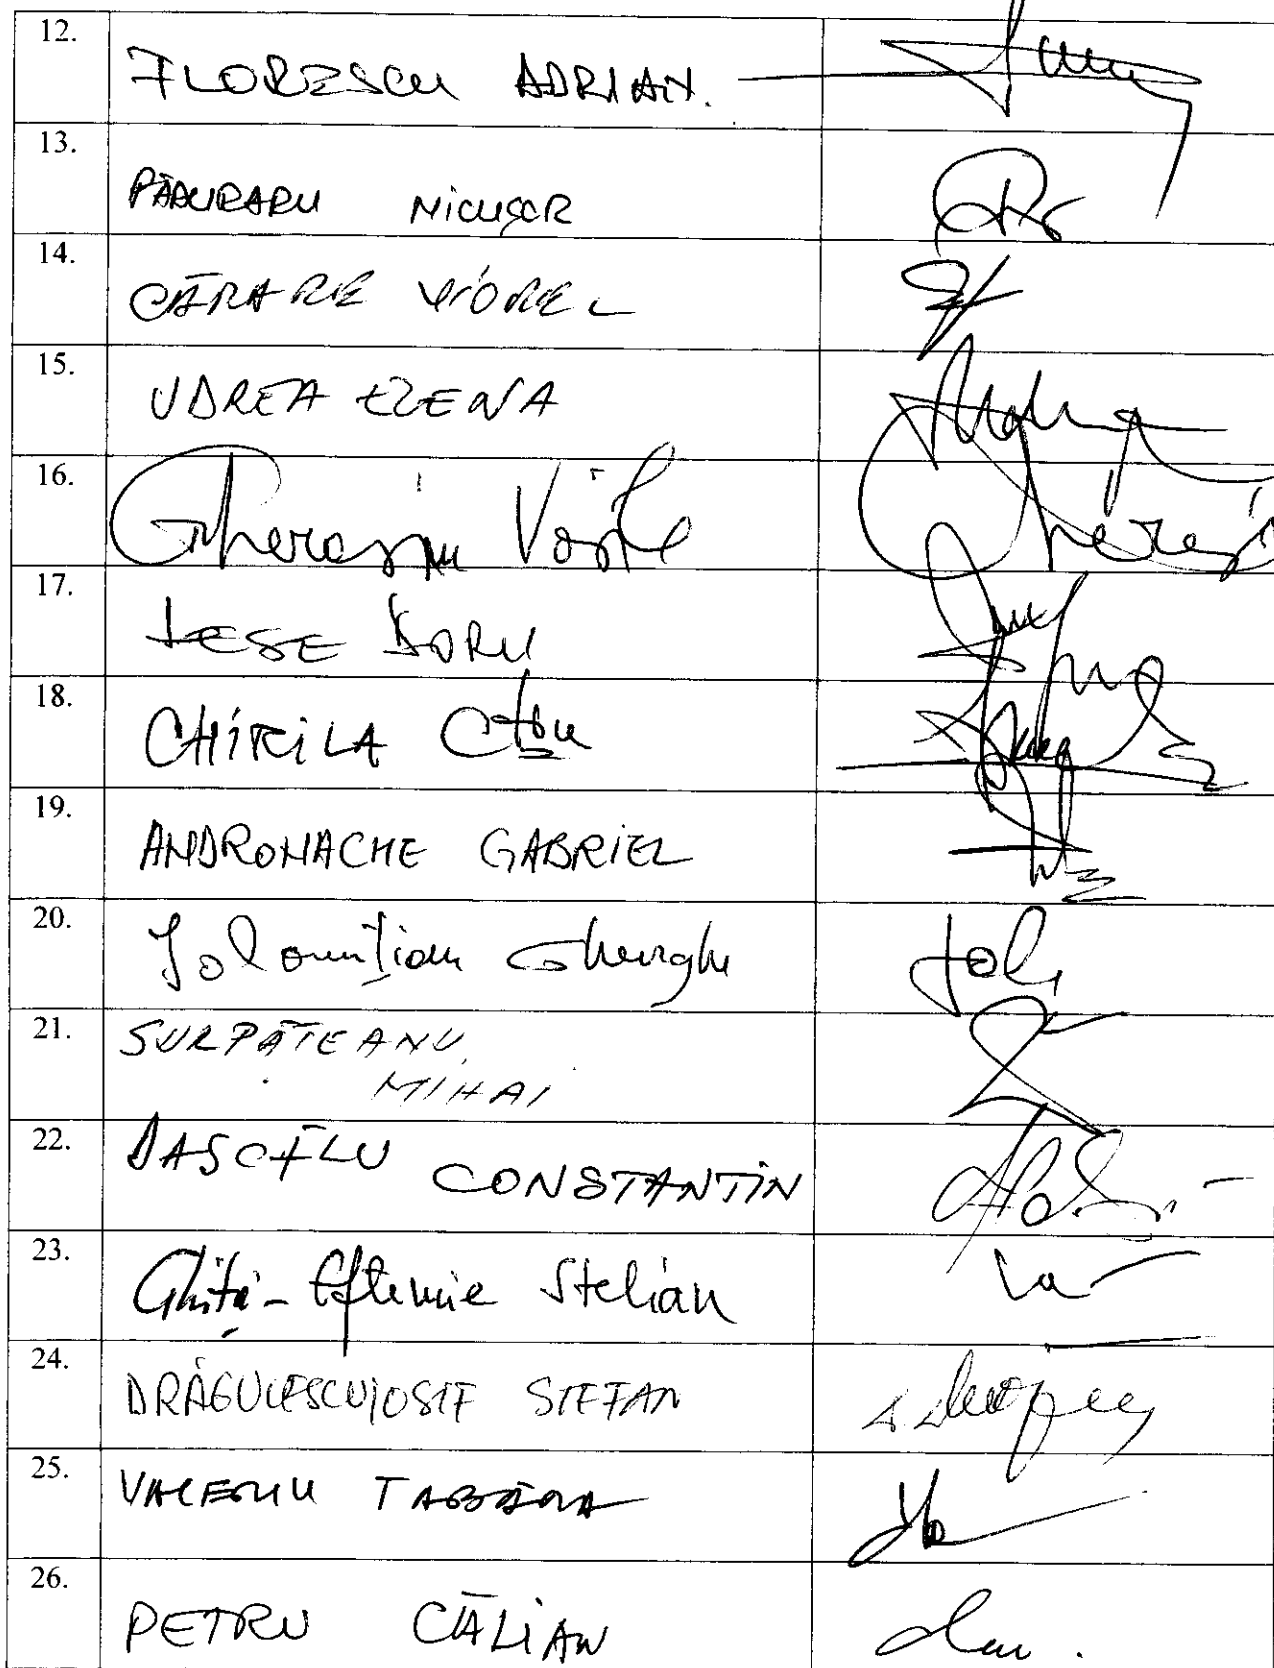 12. FLORESCU ADRIAN.
13. PĂDURARU NICUȘOR
14. CĂRARE VIOREL
15. UDREA ELENA
16. Gherasim Vasile
17. LESE DORU
18. CHIRILĂ C-tin
19. ANDRONACHE GABRIEL
20. Ialomițianu Gheorghe
21. SURPĂȚEANU
MIHAI
22. DASCĂLU CONSTANTIN
23. Ghiță-Eftemie Stelian
24. DRĂGULESCU IOSIF STEFAN
25. VALERIU TABĂRĂ
26. PETRU CĂLIAN